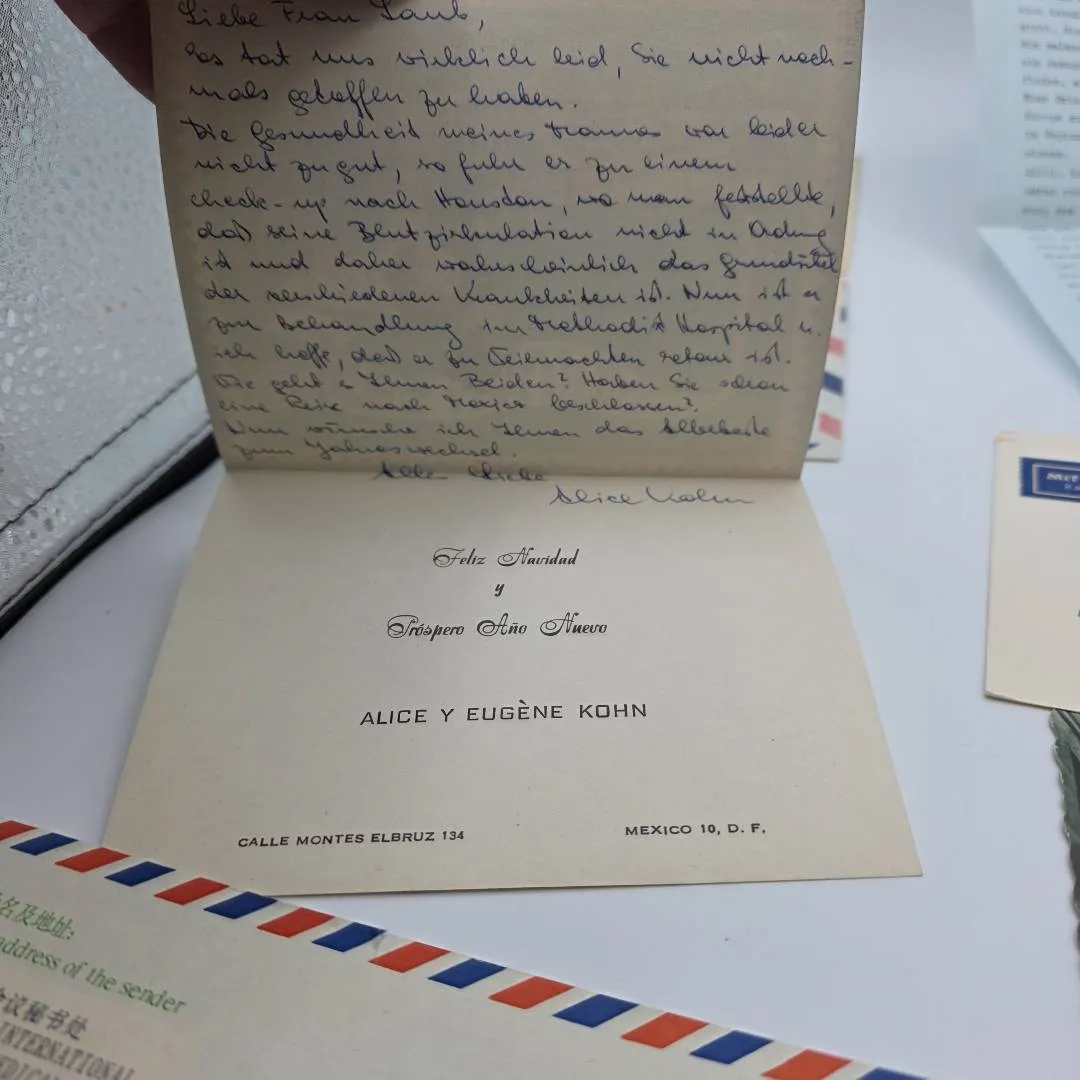 Liebe Frau Laub,
Es tat uns wirklich leid, Sie nicht noch-
mals getroffen zu haben.
Die Gesundheit meines Mannes war leider
nicht zu gut, so fuhr er zu einem
check-up nach Houston, wo man feststellte,
daß seine Blutzirkulation nicht in Ordnung
ist und daher wahrscheinlich das Grundübel
der verschiedenen Krankheiten ist. Nun ist er
zur Behandlung im Methodist Hospital u.
ich hoffe, daß er zu Weihnachten retour ist.
Wie geht es Ihnen Beiden? Haben Sie schon
eine Reise nach Mexico beschlossen?
Nun wünsche ich Ihnen das Allerbeste
zum Jahreswechsel.
Alles Liebe
Alice Kohn
Feliz Navidad
y
Próspero Año Nuevo
ALICE Y EUGÈNE KOHN
CALLE MONTES ELBRUZ 134
MEXICO 10, D. F.
名及地址:
address of the sender
会议秘书处
INTERNATIONAL